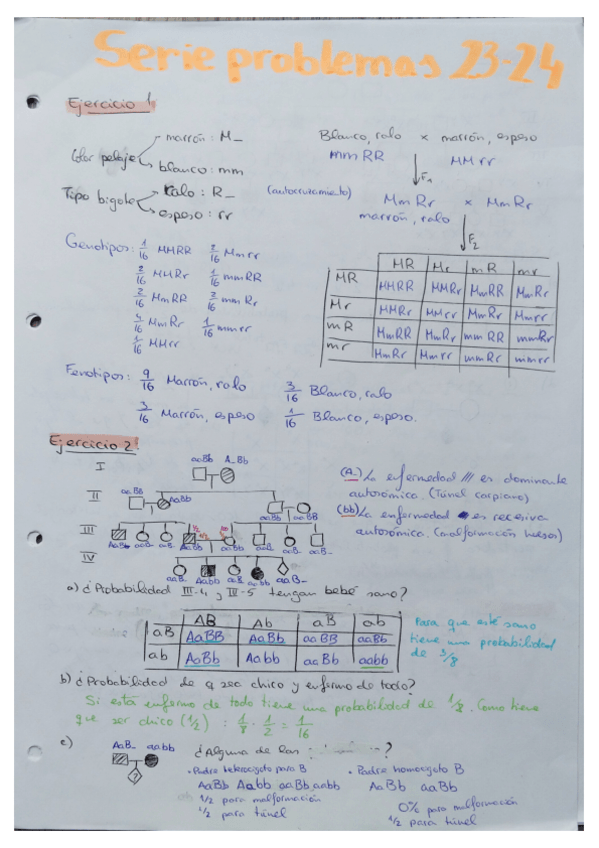 Serie problemas 23-24
Ejercicio 1
Color pelaje
marrón: M_
blanco: mm
Tipo bigote
ralo: R_
espeso: rr
Blanco, ralo x marrón, espeso
mmRR MMrr
F1
(autocruzamiento)
MmRr x MmRr
marrón, ralo
F2
Genotipos: 1/16 MMRR 2/16 Mmrr
2/16 MMRr 1/16 mmRR
2/16 MmRR 2/16 mmRr
4/16 MmRr 1/16 mmrr
1/16 MMrr
MR Mr mR mr
MR MMRR MMRr MmRR MmRr
Mr MMRr MMrr MmRr Mmrr
mR MmRR MmRr mmRR mmRr
mr MmRr Mmrr mmRr mmrr
Fenotipos: 9/16 Marrón, ralo 3/16 Blanco, ralo
3/16 Marrón, espeso 1/16 Blanco, espeso.
Ejercicio 2
I
aaBb A_Bb
II
aaBb AaBb aaBb aaBB
III
1/2 1/2
AaBb aaB_ aaB_ aaBb aaB_ aaB_ aaB_
IV
aaB_ Aabb aaB_ aabb aaB_
(A_) La enfermedad /// es dominante
autosómica. (Túnel carpiano)
(bb) La enfermedad es recesiva
autosómica. (malformación huesos)
a) ¿Probabilidad III-4 y III-5 tengan bebé sano?
AB Ab aB ab
aB AaBB AaBb aaBB aaBb
ab AaBb Aabb aaBb aabb
Para que esté sano
tiene una probabilidad
de 3/8
b) ¿Probabilidad de q sea chico y enfermo de todo?
Si está enfermo de todo tiene una probabilidad de 1/8. Como tiene
que ser chico (1/2) : 1/8 · 1/2 = 1/16
c)
AaB_ aabb
?
¿Alguna de las ?
• Padre heterocigoto para B • Padre homocigoto B
AaBb Aabb aaBb aabb AaBb aaBb
1/2 para malformación 0% para malformación
1/2 para túnel 1/2 para túnel